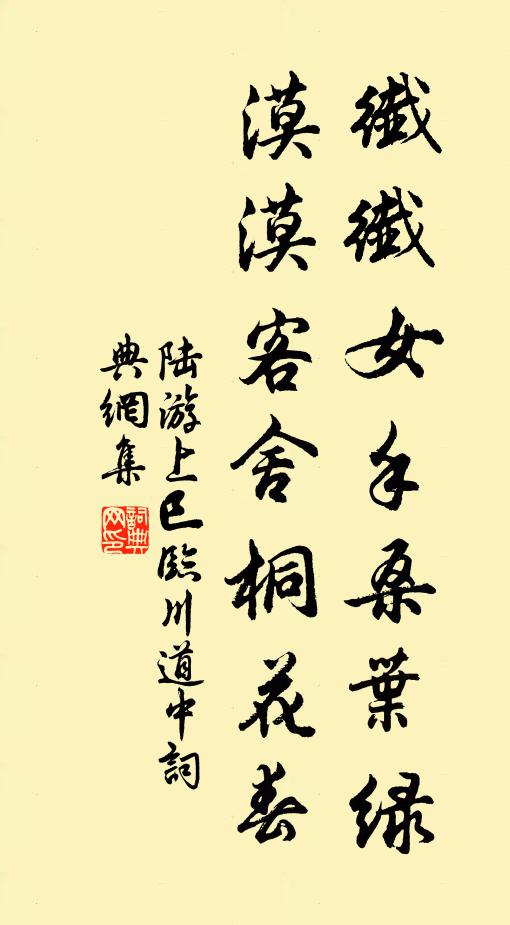 纖纖女手桑葉綠
漠漠客舍桐花春
陆游上巳臨川道中詞
典網集
詞典
网印